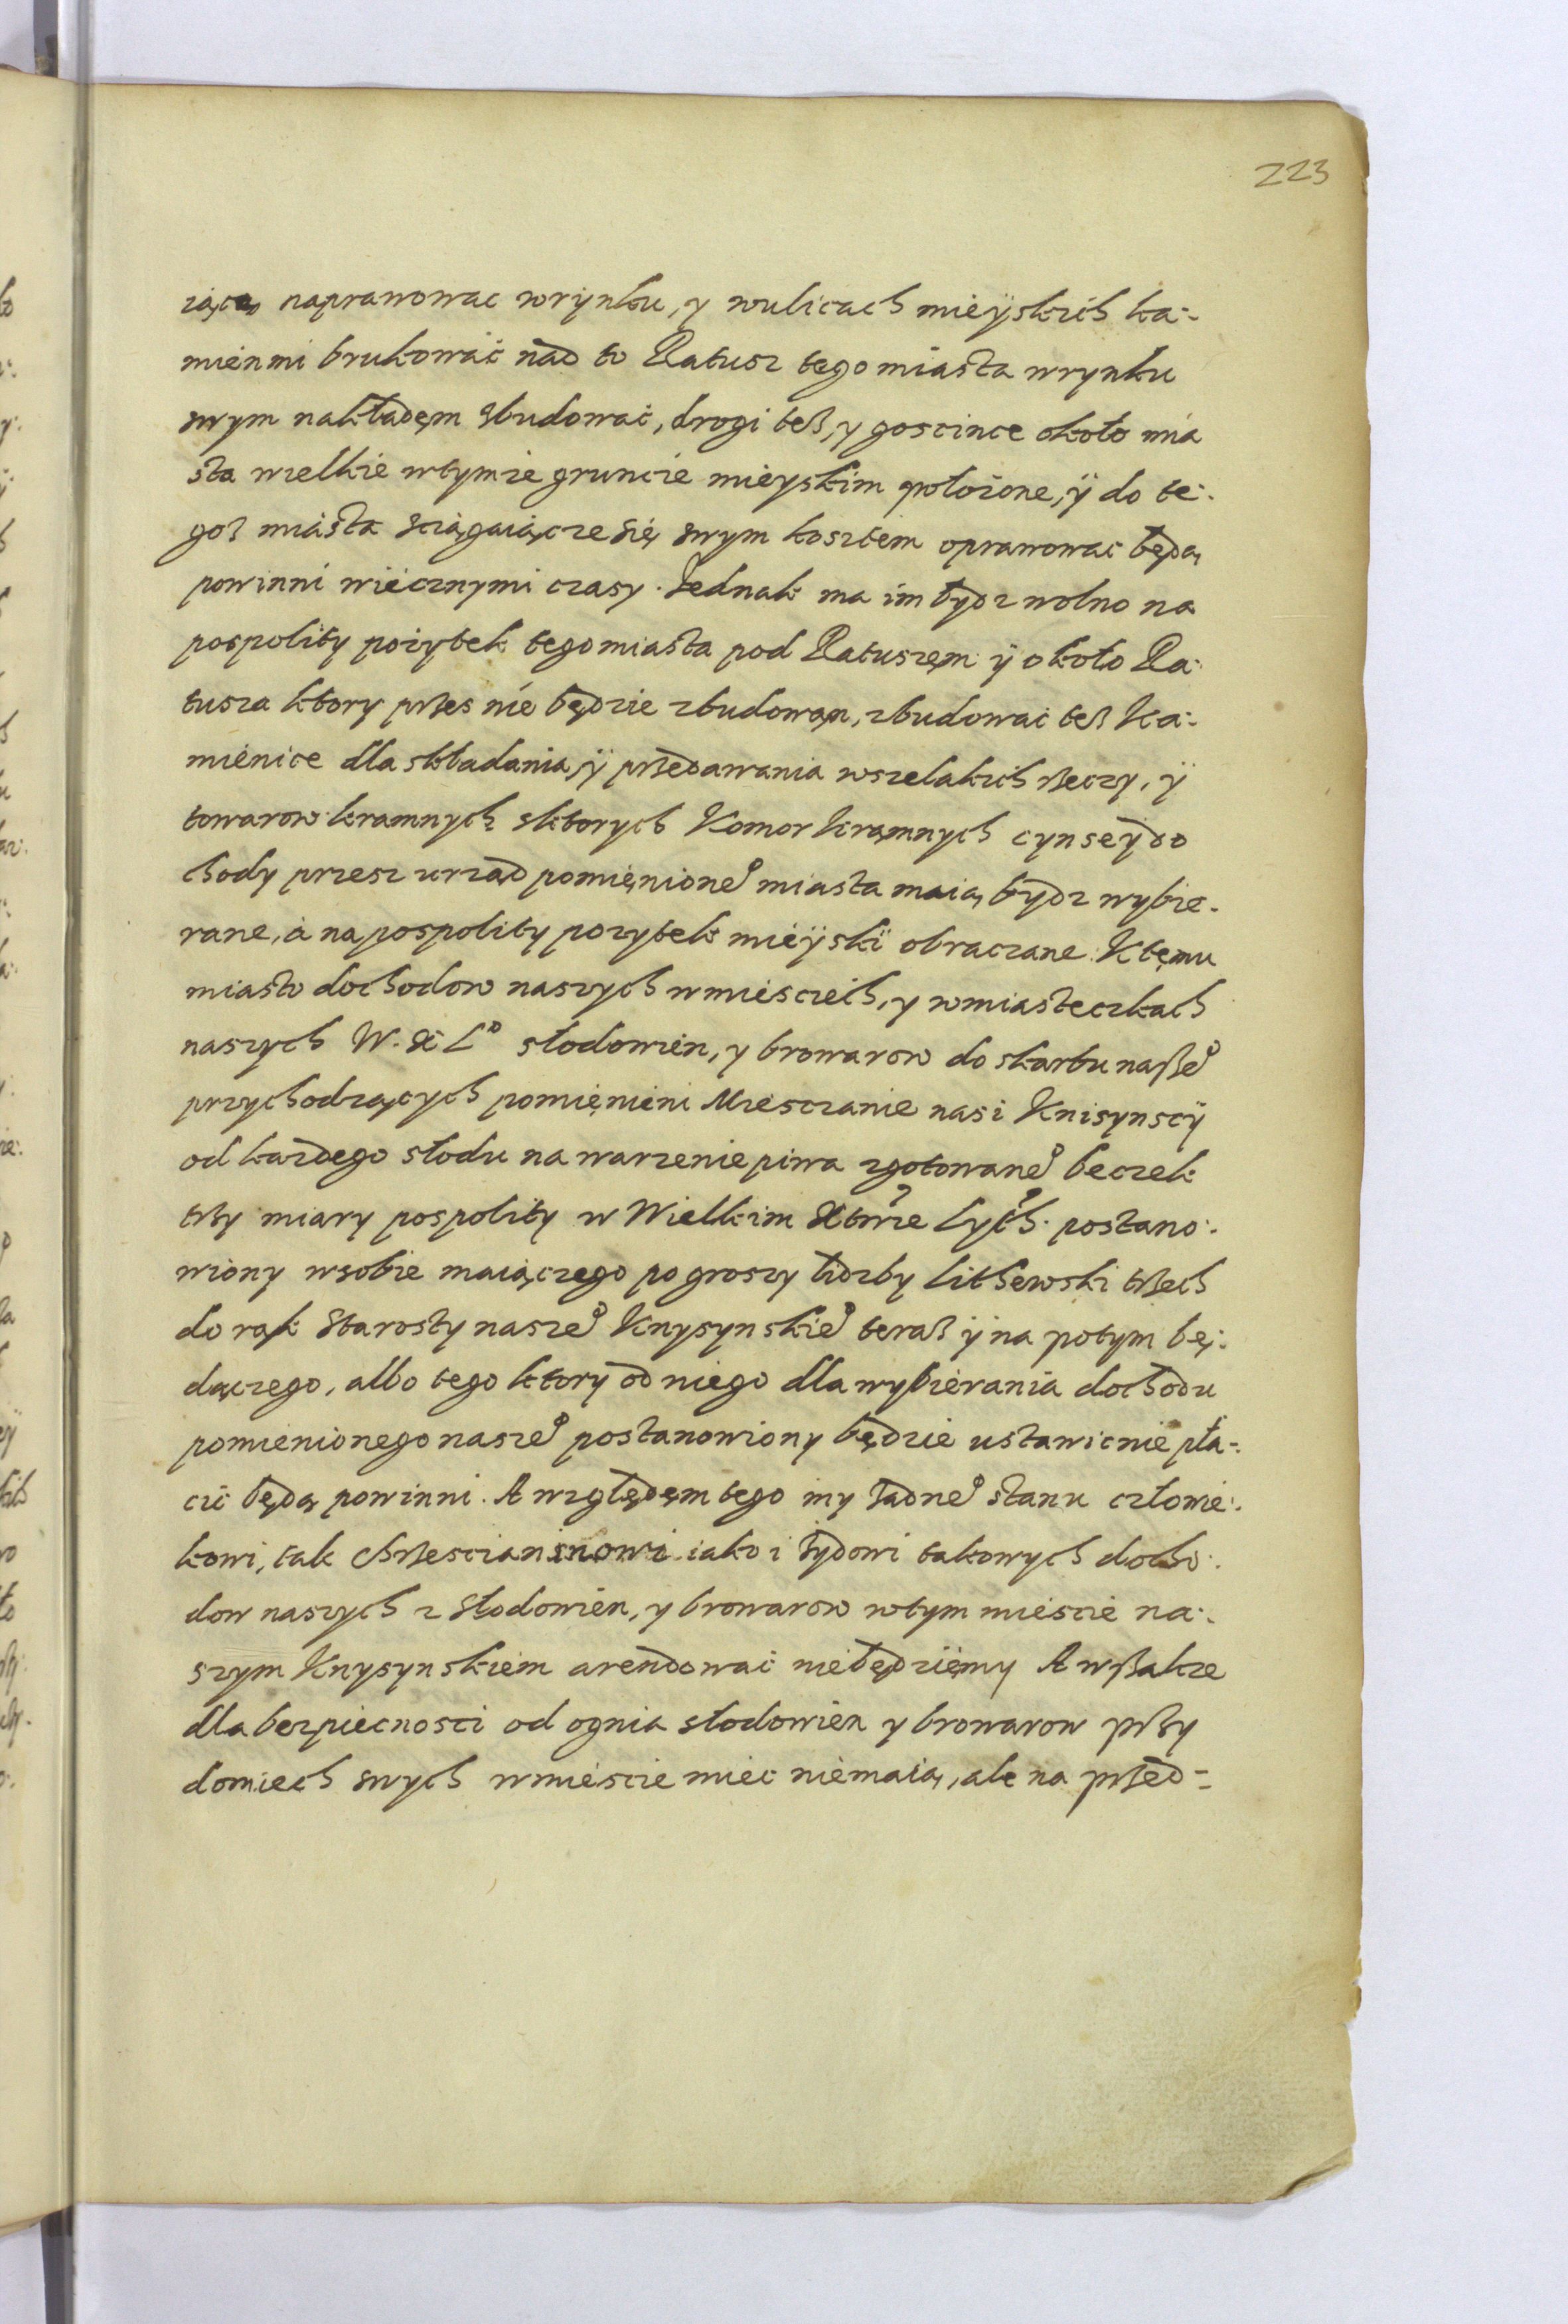 223
ziącą naprawowac wrynku, y wulicach mieÿskich ka-
mienmi brukować nad to Ratusz tego miasta wrynku
swym nakładęm zbudować, drogi teß, y goscince około mia
sta wielkie wtymze gruncie mieyskim położone, ÿ do te-
goz miasta sciągaiącze się swym kosztem oprawowac będą
powinni wiecznymi czasy. Jednak ma im bydz wolno na
pospolity pożytek tego miasta pod Ratuszęm ÿ około Ra-
tusza ktory przes nie będzie zbudowan, zbudować teß Ka-
mienice dla składania, ÿ przedawania wszelakich rzeczy, ÿ
towarow kramnych z ktorych Komor kramnych cynse ÿ do
chody przesz urząd pomięnioneº miasta maią bydz wybie-
rane, a na pospolity pozytek mieÿskï obraczane. Ktęmu
miasto dochodow naszych wmiesciech, y wmiasteczkach
naszych W. X Lº słodowien, y browarow do skarbu naßeº
przychodzących pomięnieni Miesczanie nasi Knisynscÿ
od kazdego słodu na warzenie piwa zgotowaneº beczek
trzy miary pospolity w Wielkim Xtwie Lych. postano-
wiony wsobie maiączego po groszy lidzby Lithewski trzech
do rąk Starosty naszeº Knysynskieº teraß ÿ na potym bę-
dączego, albo tego ktory od niego dla wybierania dochodu
pomienionego naszeº postanowiony będzie ustawicnie pła-
cic będą powinni. A względęm tego my żadneº stanu człowie-
kowi, tak chrzescianinowi iako i żydowi takowych docho-
dow naszych z słodowien, y browarow wtym miescie na-
szym Knysynskiem arendować niebędzięmy A wßakze
dla bezpiecnosci od ognia słodowien y browarow przy
domiech swych wmiescie miec niemaią, ale na przed-